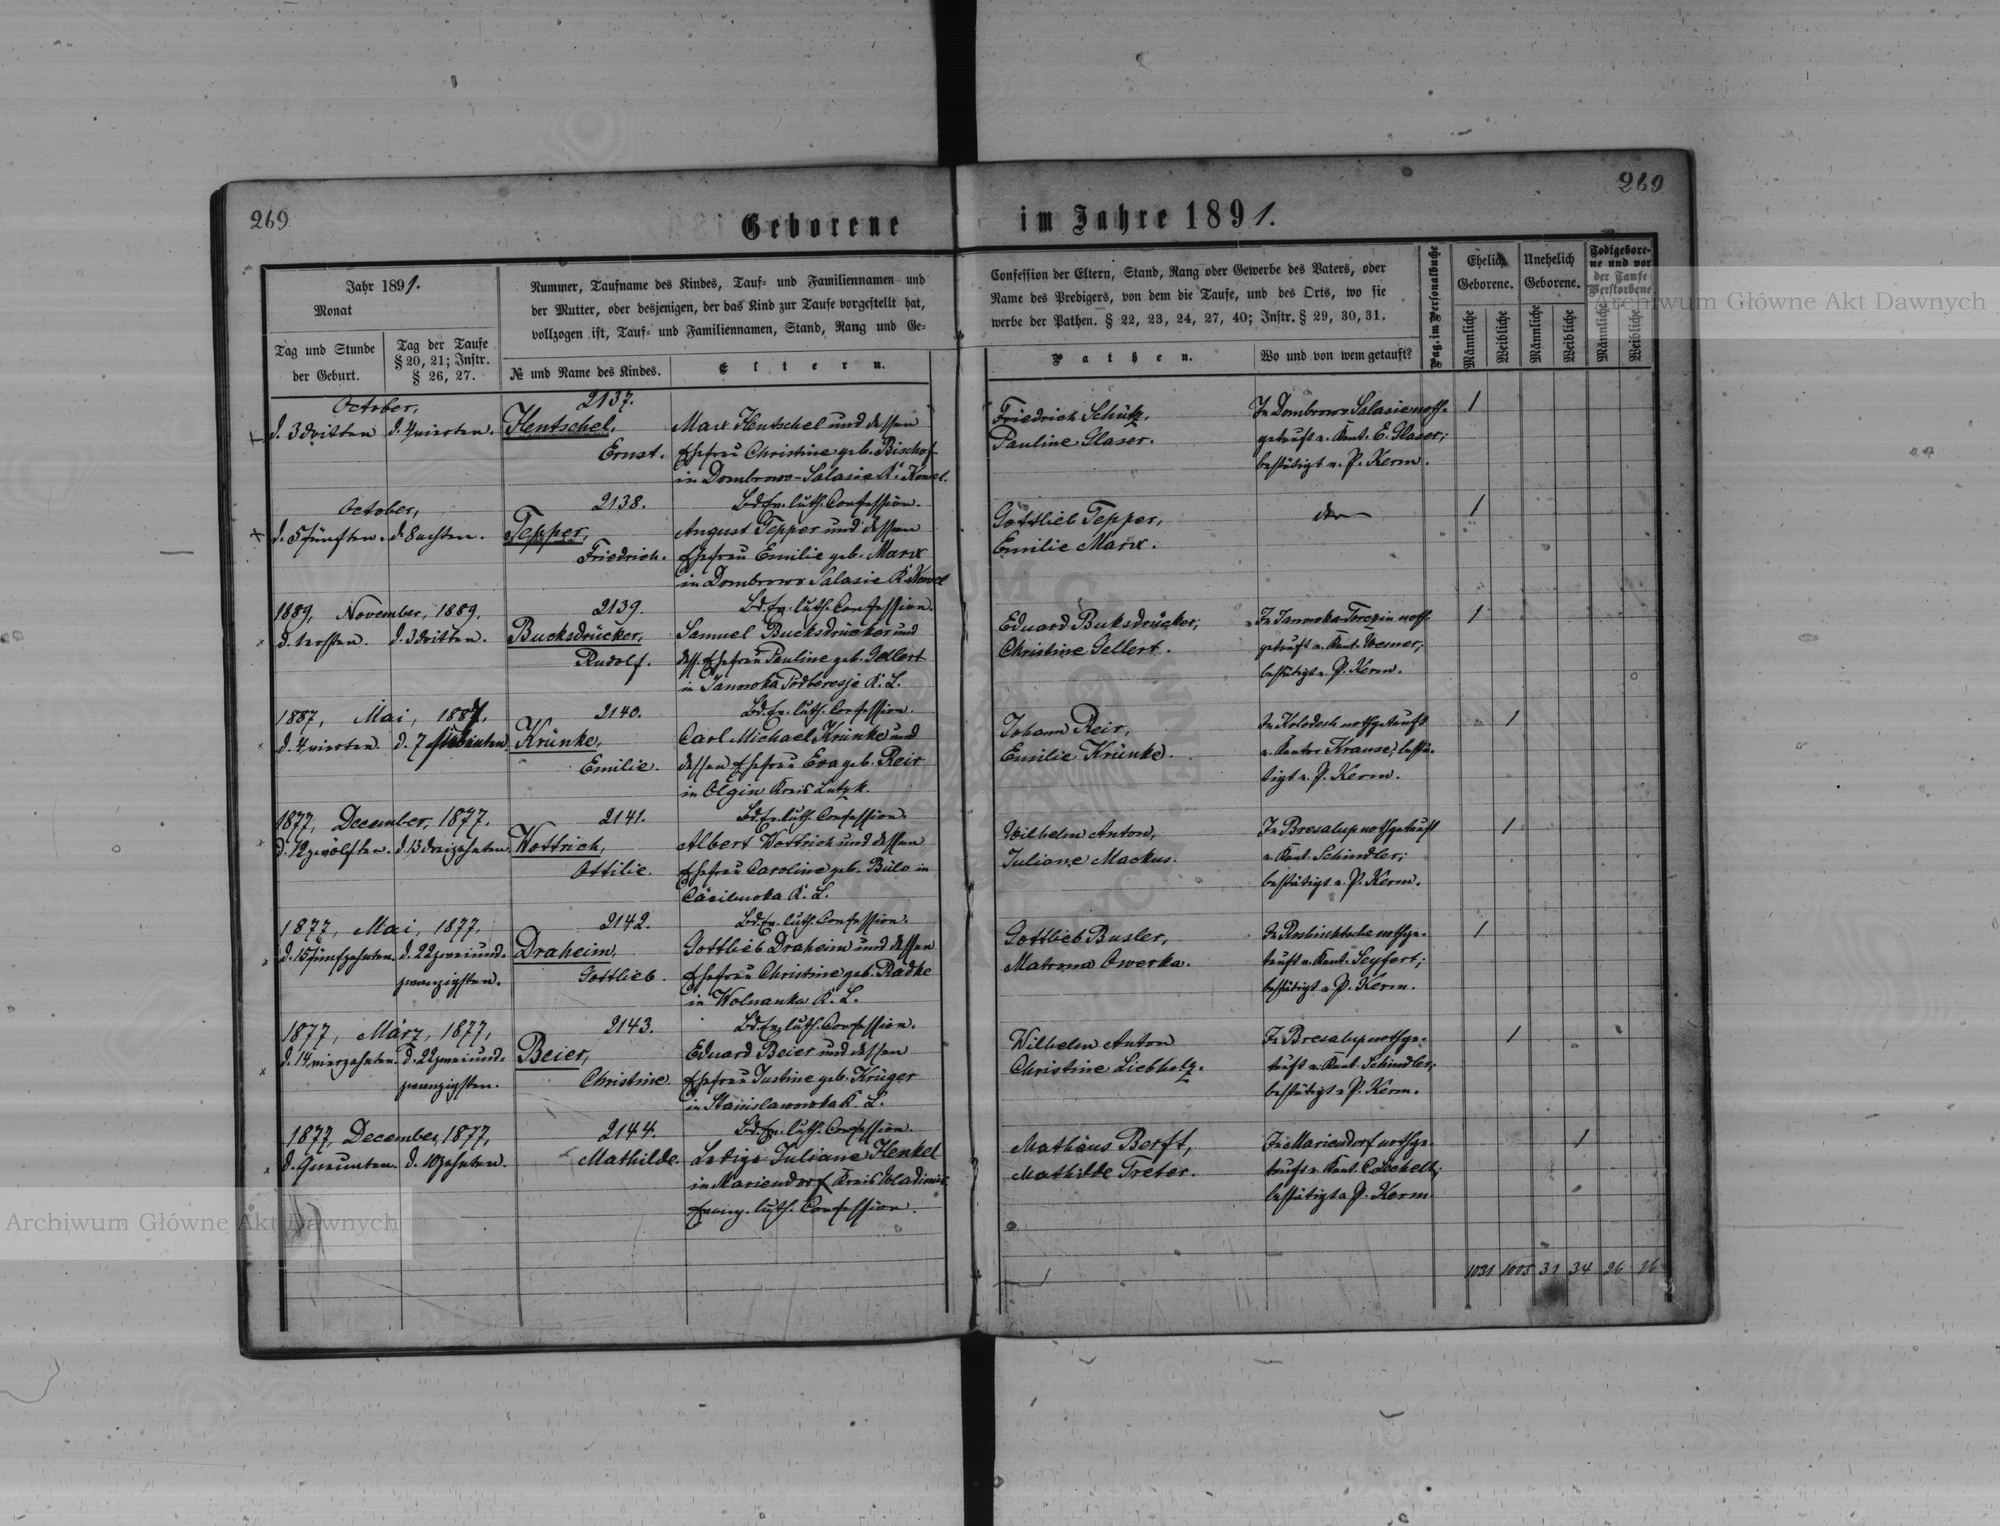 269
269
Geborene im Jahre 1891.
Jahr 1891.
Monat
Tag und Stunde
der Geburt.
Tag der Taufe
§ 20, 21; Instr.
§ 26, 27.
Nummer, Taufname des Kindes, Tauf- und Familiennamen und
der Mutter, oder desjenigen, der das Kind zur Taufe vorgestellt hat,
vollzogen ist, Tauf- und Familiennamen, Stand, Rang und Ge-
№ und Name des Kindes.
Eltern.
Confession der Eltern, Stand, Rang oder Gewerbe des Vaters, oder
Name des Predigers, von dem die Taufe, und des Orts, wo sie
werbe der Pathen. § 22, 23, 24, 27, 40; Instr. § 29, 30, 31.
Pathen.
Wo und von wem getauft?
Pag. im Personalbuche
Ehelich
Geborene.
Unehelich
Geborene.
Todtgebore-
ne und vor
der Taufe
Verstorbene
Männliche
Weibliche
Männliche
Weibliche
Männliche
Weibliche
October,
d. 3 dritten d. 4 vierten.
2137.
Hentschel,
Ernst.
Marx Hentschel und dessen
Ehefrau Christine geb. Bischof
in Dombrowo-Salasie K. Kowel.
Bd. Ev. luth. Confession.
Friedrich Schütz,
Pauline Glaser.
In Dombrowo Salasie noth-
getauft v. Kant. E. Glaser;
bestätigt v. P. Kerm.
1
October,
d. 5 fünften. d. 8 achten.
2138.
Tepper,
Friedrich.
August Tepper und dessen
Ehefrau Emilie geb. Marx
in Dombrowo Salasie K. Kowel
Bd. Ev. luth. Confession.
Gottlieb Tepper,
Emilie Marx.
1
1889, November, 1889.
d. 1 ersten. d. 3 dritten.
2139.
Bucksdrücker,
Rudolf.
Samuel Bucksdrücker und
dess. Ehefrau Pauline geb. Gellert
in Janowka Podberesje K. L.
Bd. Ev. luth. Confession.
Eduard Buksdrücker,
Christine Gellert.
In Janowka-Torczin noth-
getauft v. Kant. Wesner;
bestätigt v. P. Kerm.
1
1887, Mai, 1887.
d. 4 vierten. d. 7 siebenten.
2140.
Krünke,
Emilie.
Carl Michael Krünke und
dessen Ehefrau Eva geb. Reir
in Olgin Kreis Lutzk.
Bd. Ev. luth. Confession.
Johann Reir,
Emilie Krünke.
In Kolodesh nothgetauft
v. Kantor Krause; bestä-
tigt v. P. Kerm.
1
1877, December, 1877.
d. 12 zwölften. d. 13 dreizehnten
2141.
Wottrich,
Ottilie.
Albert Wottrich und dessen
Ehefrau Caroline geb. Bülo in
Cäcilwoka K. L.
Bd. Ev. luth. Confession.
Wilhelm Anton,
Juliane Mackus.
In Bresalup nothgetauft
v. Kant. Schindler;
bestätigt v. P. Kerm.
1
1877, Mai, 1877.
d. 15 fünfzehnten. d. 22 zweiund-
zwanzigsten.
2142.
Draheim,
Gottlieb.
Gottlieb Draheim und dessen
Ehefrau Christine geb. Radke
in Wolnanka K. L.
Bd. Ev. luth. Confession.
Gottlieb Busler,
Matrona Owerka.
nothge-
tauft v. Kant. Seyfert;
bestätigt v. P. Kerm.
1
1877, März, 1877,
d. 14 vierzehnten. d. 22 zweiund-
zwanzigsten.
2143.
Beier,
Christine.
Eduard Beier und dessen
Ehefrau Justine geb. Krüger
in Stanislawowka K. L.
Bd. Ev. luth. Confession.
Wilhelm Anton
Christine Liebholz.
In Bresalup nothge-
tauft v. Kant. Schindler;
bestätigt v. P. Kerm.
1
1877, December, 1877,
d. 9 neunten. d. 10 zehnten.
2144.
Mathilde.
Ledige Juliane Henkel
in Mariendorf Kreis Wladimir
Evang. luth. Confession.
Mathäus Berft,
Mathilde Treter.
In Mariendorf nothge-
tauft v. Kant.
bestätigt v. P. Kerm
1
1031 1005 31 34 26 16
Archiwum Główne Akt Dawnych
Archiwum Główne Akt Dawnych